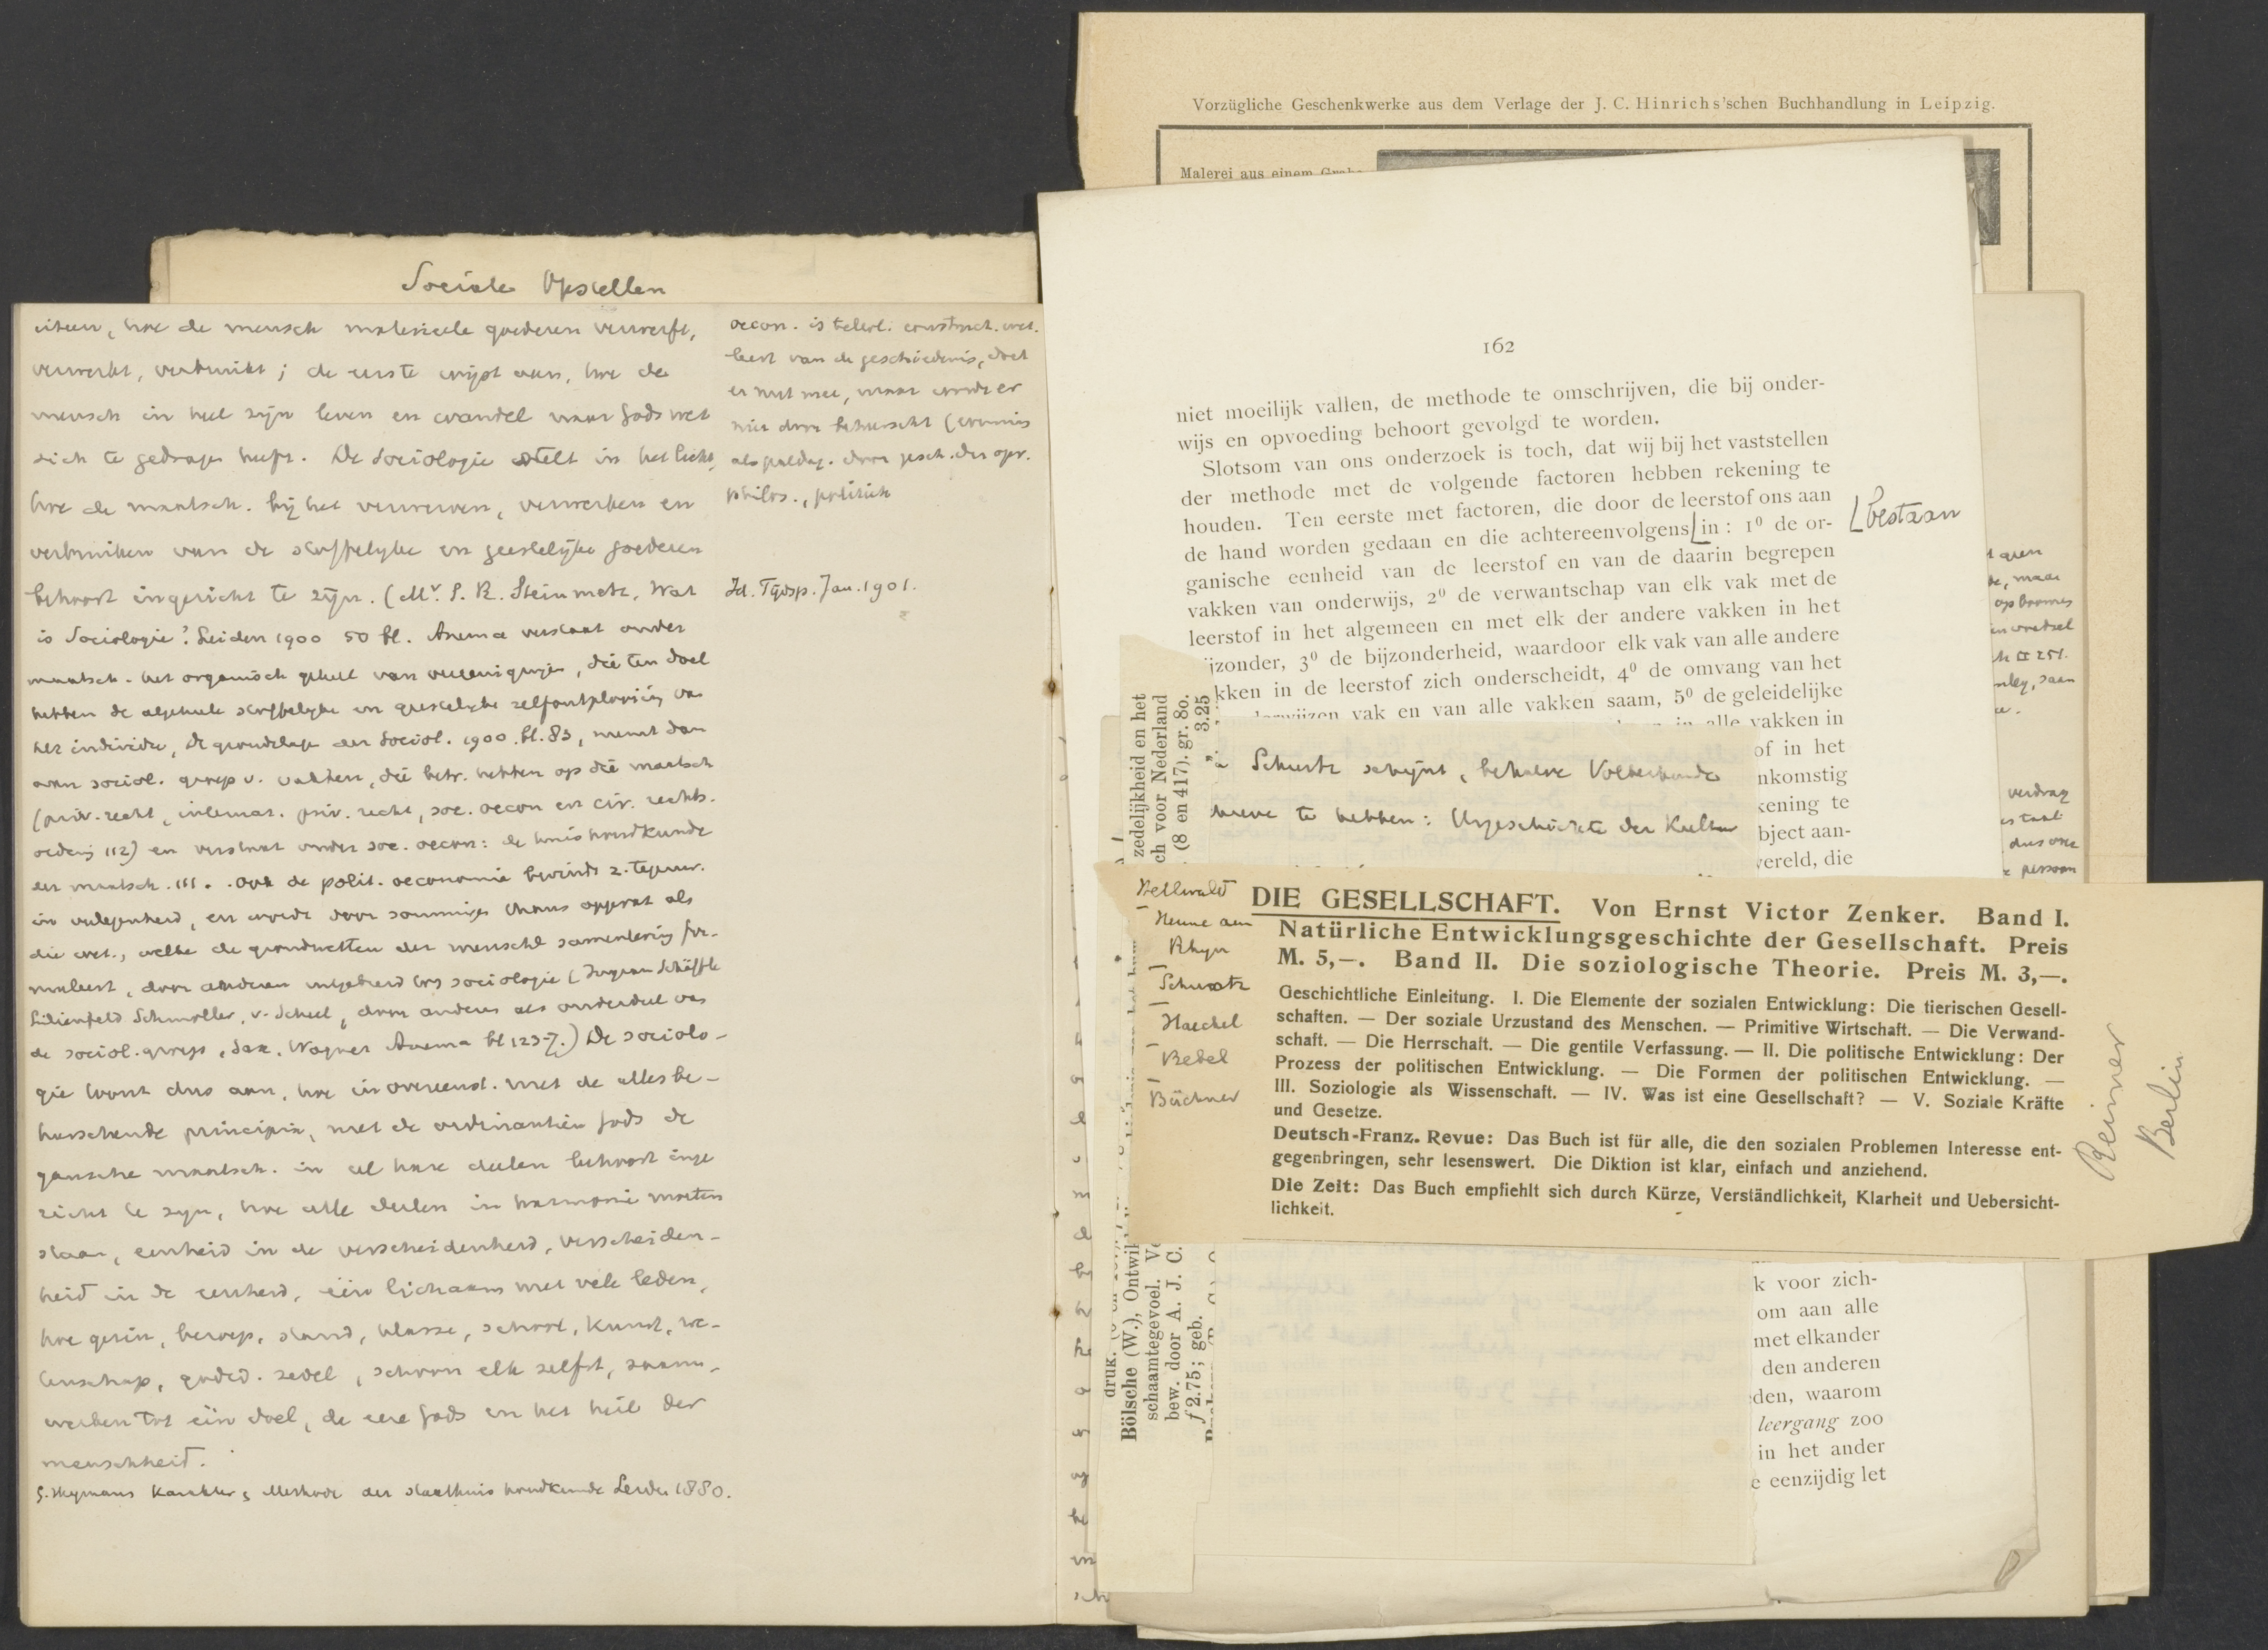 Sociale Opstellen
uiteen, hoe de mensch materieele goederen verwerft,
verwerkt, verbruikt; de eerste wijst aan, hoe de
mensch in heel zijn leven en wandel naar Gods wet
zich te gedragen heeft. De Sociologie stelt in het licht,
hoe de maatsch. bij het verwerven, verwerken en
verbruiken van de stoffelijke en geestelijke goederen
behoort ingericht te zijn. (Mr. S. R. Steinmetz, Wat
is Sociologie? Leiden 1900 50 bl. Anema verstaat onder
maatsch. het organisch geheel van vereenigingen, die ten doel
hebben de algeheele stoffelijke en geestelijke zelfontplooiing van
het individu, De grondslagen der Sociol. 1900. bl. 83, neemt dan
aan sociol. groep v. vakken, die betr. hebben op die maatsch
(priv. recht, internat. priv. recht, soc. oecon en civ. rechts-
orden 112) en verstaat onder soc. oecon: de huishoudkunde
der maatsch. 111. Ook de polit. oeconomie bevindt z. tegenw.
in verlegenheid, en wordt door sommigen thans opgevat als
die wet., welke de grondwetten der menschl samenleving for-
muleert, door anderen uitgebreid tot sociologie (Ingram Schäffle
Lilienfeld Schmoller, v. Scheel, door anderen als onderdeel van
de sociol. groep, Sax, Wagner Anema bl 123-7.) De sociolo-
gie toont dus aan, hoe in overeenst. met de alles be-
heerschende principia, met de ordinantiën Gods de
gansche maatsch. in al hare deelen behoort inge
richt te zijn, hoe alle deelen in harmonie moeten
staan, eenheid in de verscheidenheid, verscheiden-
heid in de eenheid, één lichaam met vele leden,
hoe gezin, beroep, stand, klasse, school, kunst, we-
tenschap, godsd. zedel, schoon elk zelfst, saam-
werken tot één doel, de eere Gods en het heil der
menschheid.
G. Heymans Karakter & Methode der staathuishoudkunde Leiden 1880.
oecon. is teleol. construct. wet.
leert van de geschiedenis, doet
er nut mee, maar wordt er
niet door beheerscht (evenmin
als paedag. door gesch. der opv.
philos., politiek
Id. Tijdsp. Jan. 1901.
Vorzügliche Geschenkwerke aus dem Verlage der J. C. Hinrichs'schen Buchhandlung in Leipzig.
Malerei aus einem
162
niet moeilijk vallen, de methode te omschrijven, die bij onder-
wijs en opvoeding behoort gevolgd te worden.
Slotsom van ons onderzoek is toch, dat wij bij het vaststellen
der methode met de volgende factoren hebben rekening te
houden. Ten eerste met factoren, die door de leerstof ons aan
de hand worden gedaan en die achtereenvolgens⌊in: 1⁰ de or-
⌊bestaan
ganische eenheid van de leerstof en van de daarin begrepen
vakken van onderwijs, 2⁰ de verwantschap van elk vak met de
leerstof in het algemeen en met elk der andere vakken in het
ijzonder, 3⁰ de bijzonderheid, waardoor elk vak van alle andere
kken in de leerstof zich onderscheidt, 4⁰ de omvang van het
vak en van alle vakken saam, 5⁰ de geleidelijke
in alle vakken in
of in het
nkomstig
kening te
bject aan-
vereld, die
k voor zich-
om aan alle
met elkander
den anderen
den, waarom
leergang zoo
in het ander
e eenzijdig let
maar
verdrag
dus
persoon
zedelijkheid en het
ch voor Nederland
(8 en 417). gr. 8o.
3.25
druk.
Bölsche (W.), Ontwik
schaamtegevoel. Ve
bew. door A. J. C.
f 2.75; geb.
Schurtz schijnt, behalve Völkerkunde
nieuw te hebben: Urgeschichte der Kultur
Hellwald
Henne am
Rhyn
Schurtz
Haeckel
Bebel
Büchner
DIE GESELLSCHAFT. Von Ernst Victor Zenker. Band I.
Natürliche Entwicklungsgeschichte der Gesellschaft. Preis
M. 5,—. Band II. Die soziologische Theorie. Preis M. 3,—.
Geschichtliche Einleitung. I. Die Elemente der sozialen Entwicklung: Die tierischen Gesell-
schaften. — Der soziale Urzustand des Menschen. — Primitive Wirtschaft. — Die Verwand-
schaft. — Die Herrschaft. — Die gentile Verfassung. — II. Die politische Entwicklung: Der
Prozess der politischen Entwicklung. — Die Formen der politischen Entwicklung. —
III. Soziologie als Wissenschaft. — IV. Was ist eine Gesellschaft? — V. Soziale Kräfte
und Gesetze.
Deutsch-Franz. Revue: Das Buch ist für alle, die den sozialen Problemen Interesse ent-
gegenbringen, sehr lesenswert. Die Diktion ist klar, einfach und anziehend.
Die Zeit: Das Buch empfiehlt sich durch Kürze, Verständlichkeit, Klarheit und Uebersicht-
lichkeit.
Reimer
Berlin